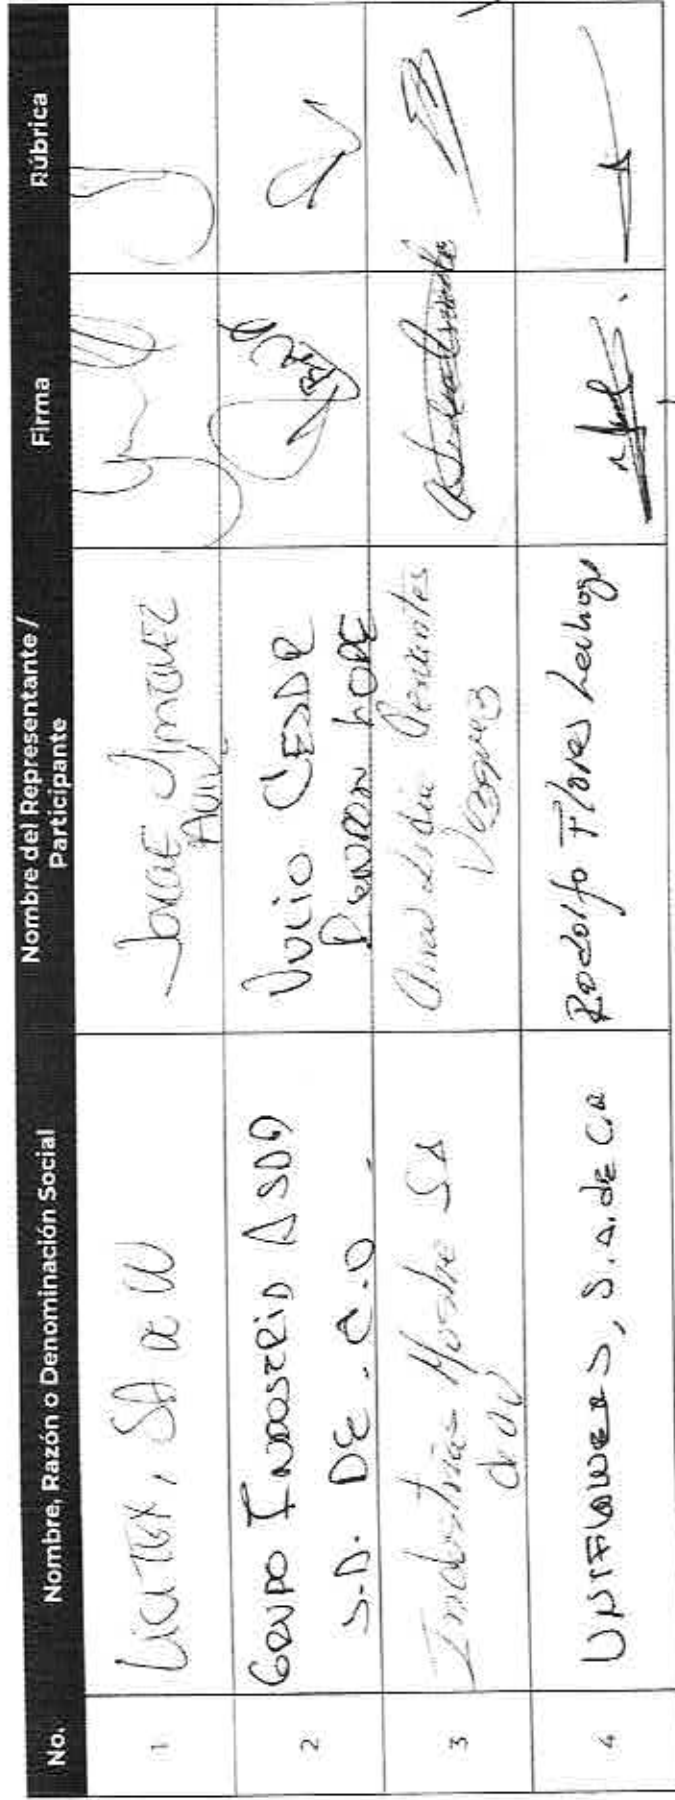 No. Nombre, Razón o Denominación Social Nombre del Representante / Participante Firma Rúbrica
1 LICITEX, SA de CV JORGE JIMENEZ
2 GRUPO INDOSTRIA ASDA JULIO CESAR
S.A. DE. C.V. RENDON LOPE
3 Industrias Ana Lidia Cervantes
SA de CV
4 UNIFLOWERS, S.A. de C.V. Rodolfo Flores